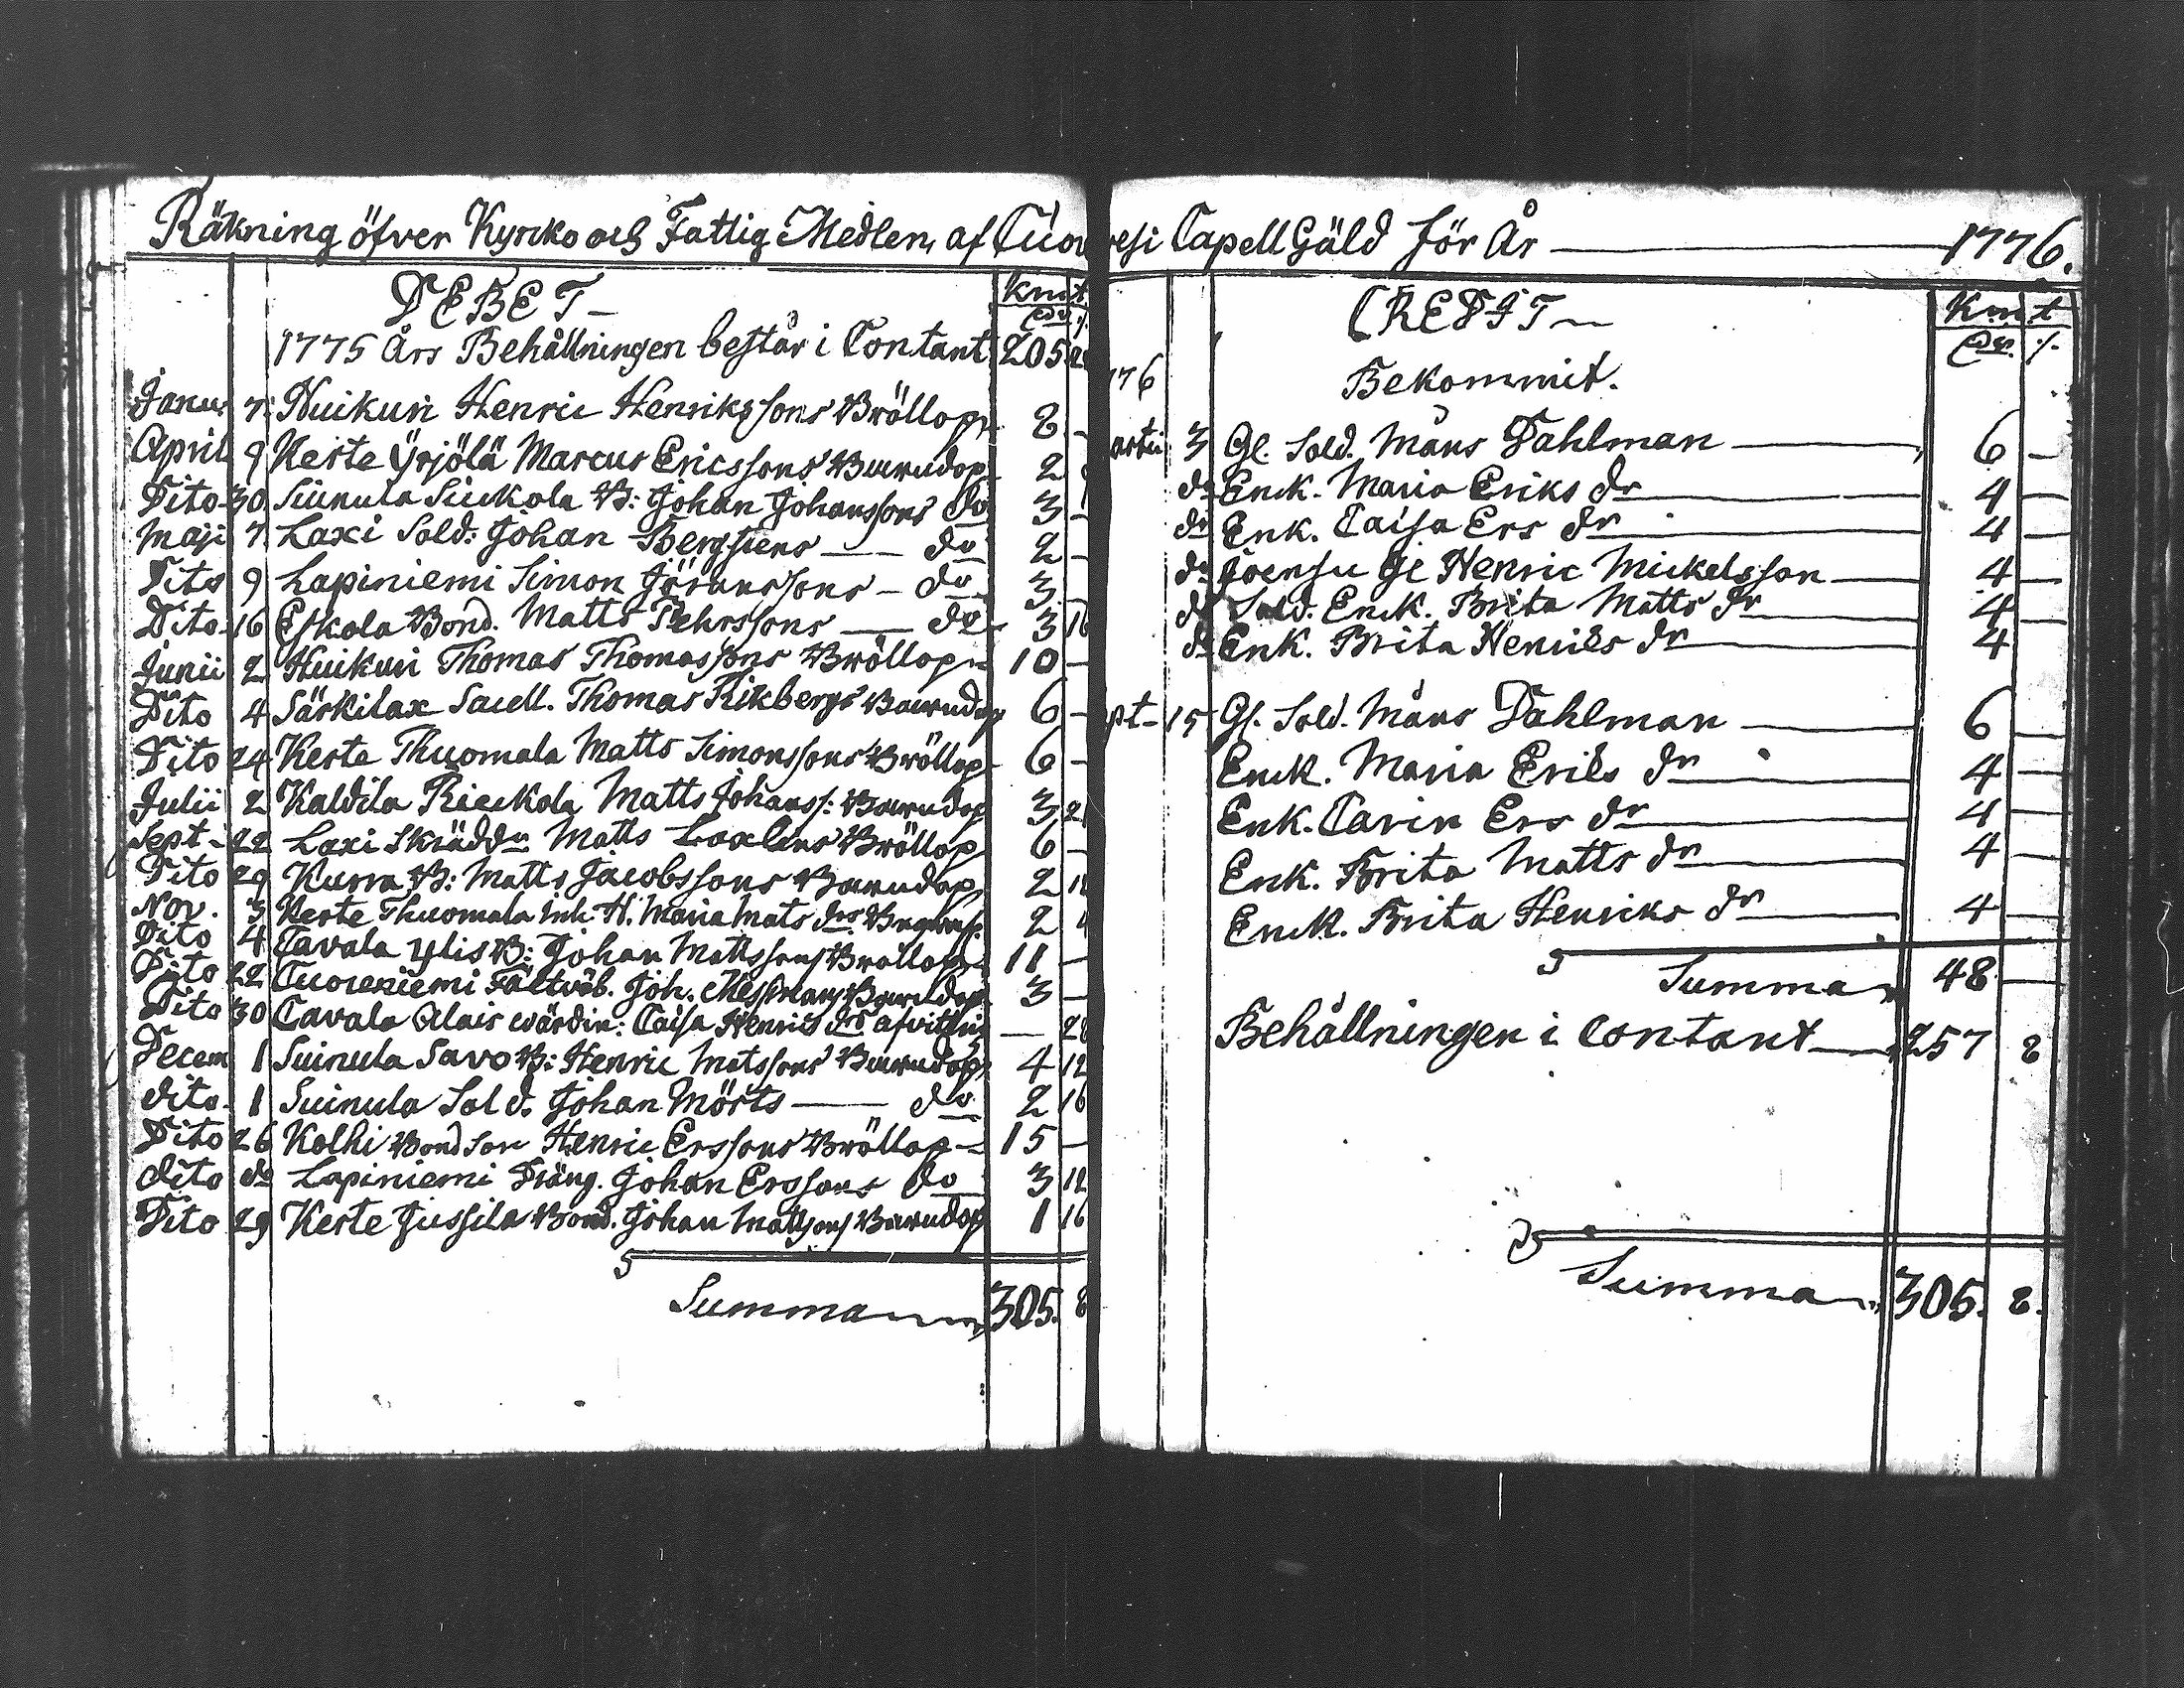 Räkning öfver Kyrko och Fattig Medlen, af Tuov
DEBET
Kmt
1775 Års Behållningen består i Contant 205
Janu. 7 Huikuri Henric Henrikssons Bröllop 8 –
April 9 Keste Yrjölä Marcus Ericssons Barndop 2
Dito 30 Suinula Siukola B: Johan Johanssons do 3 –
Maji 7 Laxi Sold: Johan Bergstens — do 2 –
Dito 9 Lapiniemi Simon Jöranssons – do 3 –
Dito 16 Eskola Bond. Matts Pehrssons — do 3 16
Junii 2 Huikuri Thomas Thomassons Bröllop 10 –
Dito 4 Särkilax Thomas Rikbergs Barndop 6 –
Dito 24 Keste Thuomala Matts Simonssons Bröllop 6 –
Julii 2 Kaldila Matts Johanss: Barndop 3
Sept 22 Laxi Skrädd Matts Laxlens Bröllop 6 –
Dito 29 Kurra B: Matts Jacobssons Barndop 2
Nov. 3 Keste Thuomala Inh. H. Maria Mats drs 2
Dito 4 Tavala Ylis B: Johan Mattssons Bröllop 11 –
Dito 22 Fältväb. Joh. Barndop 3 –
Dito 30 Tavala Alais wärdin: Caisa Henrics drs —
Decem 1 Suinula Savo B: Henric Matssons Barndop 4 12
dito 1 Suinula Sold. Johan Mörts — do 2 16
Dito 26 Kolhi Bond Son Henric Erssons Bröllop 15 –
dito do Lapiniemi Dräng. Johan Erssons do 3 12
Dito 29 Keste Jussila Bond. Johan Mattsons Barndop 1 16
Summa 305. 8
resi Capell Gäld för År — 1776.
CREDIT
Kmt
76
Bekommit.
artii 3 Gl. Sold. Måns Dahlman — 6 –
do Enck. Maria Eriks dr — 4 –
do Enk. Caisa Ers dr — 4 –
do Joensu Gl Henric Mickelsson — 4 –
do Sold. Enck. Brita Matts dr — 4 –
do Enk. Brita Henriks dr — 4
pt 15 Gl. Sold. Måns Dahlman — 6 –
Enck. Maria Eriks dr — 4 –
Enk. Carin Ers dr — 4 –
Enk. Brita Matts dr — 4 –
Enck. Brita Henriks dr — 4 –
Summa 48 –
Behållningen i Contant — 257 8
Summa 305. 8.